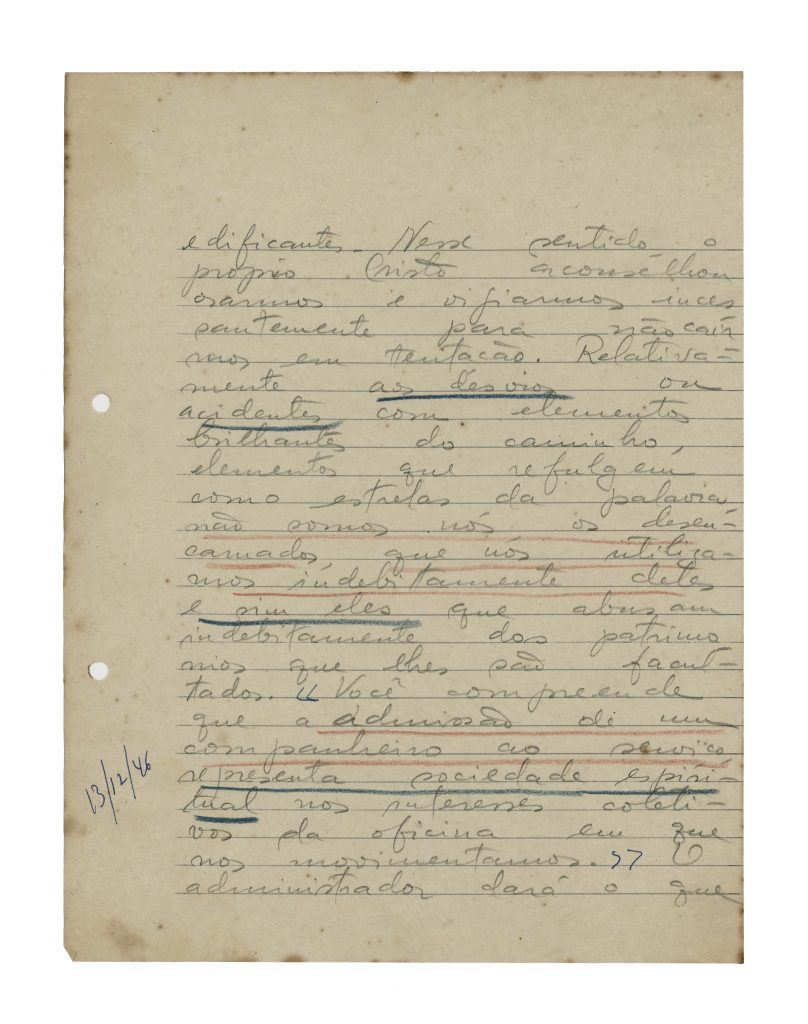 edificantes. Nesse sentido o
proprio Cristo aconselhou
orarmos e vigiarmos inces
santemente para não cair
mos em tentacão. Relativa-
mente aos desvios ou
acidentes com elementos
brilhantes do caminho,
elementos que refulgem
como estrelas da palavra
não somos nós os desen-
carnados que nos utiliza-
mos indebitamente deles
e sim eles que abusam
indebitamente dos patrimo
nios que lhes são facul-
tados. "Você compreende
que a admissão de um
companheiro ao serviço
representa sociedade espiri-
tual nos interesses coleti-
vos da oficina em que
nos movimentamos." O
administrador dará o que
13/12/46